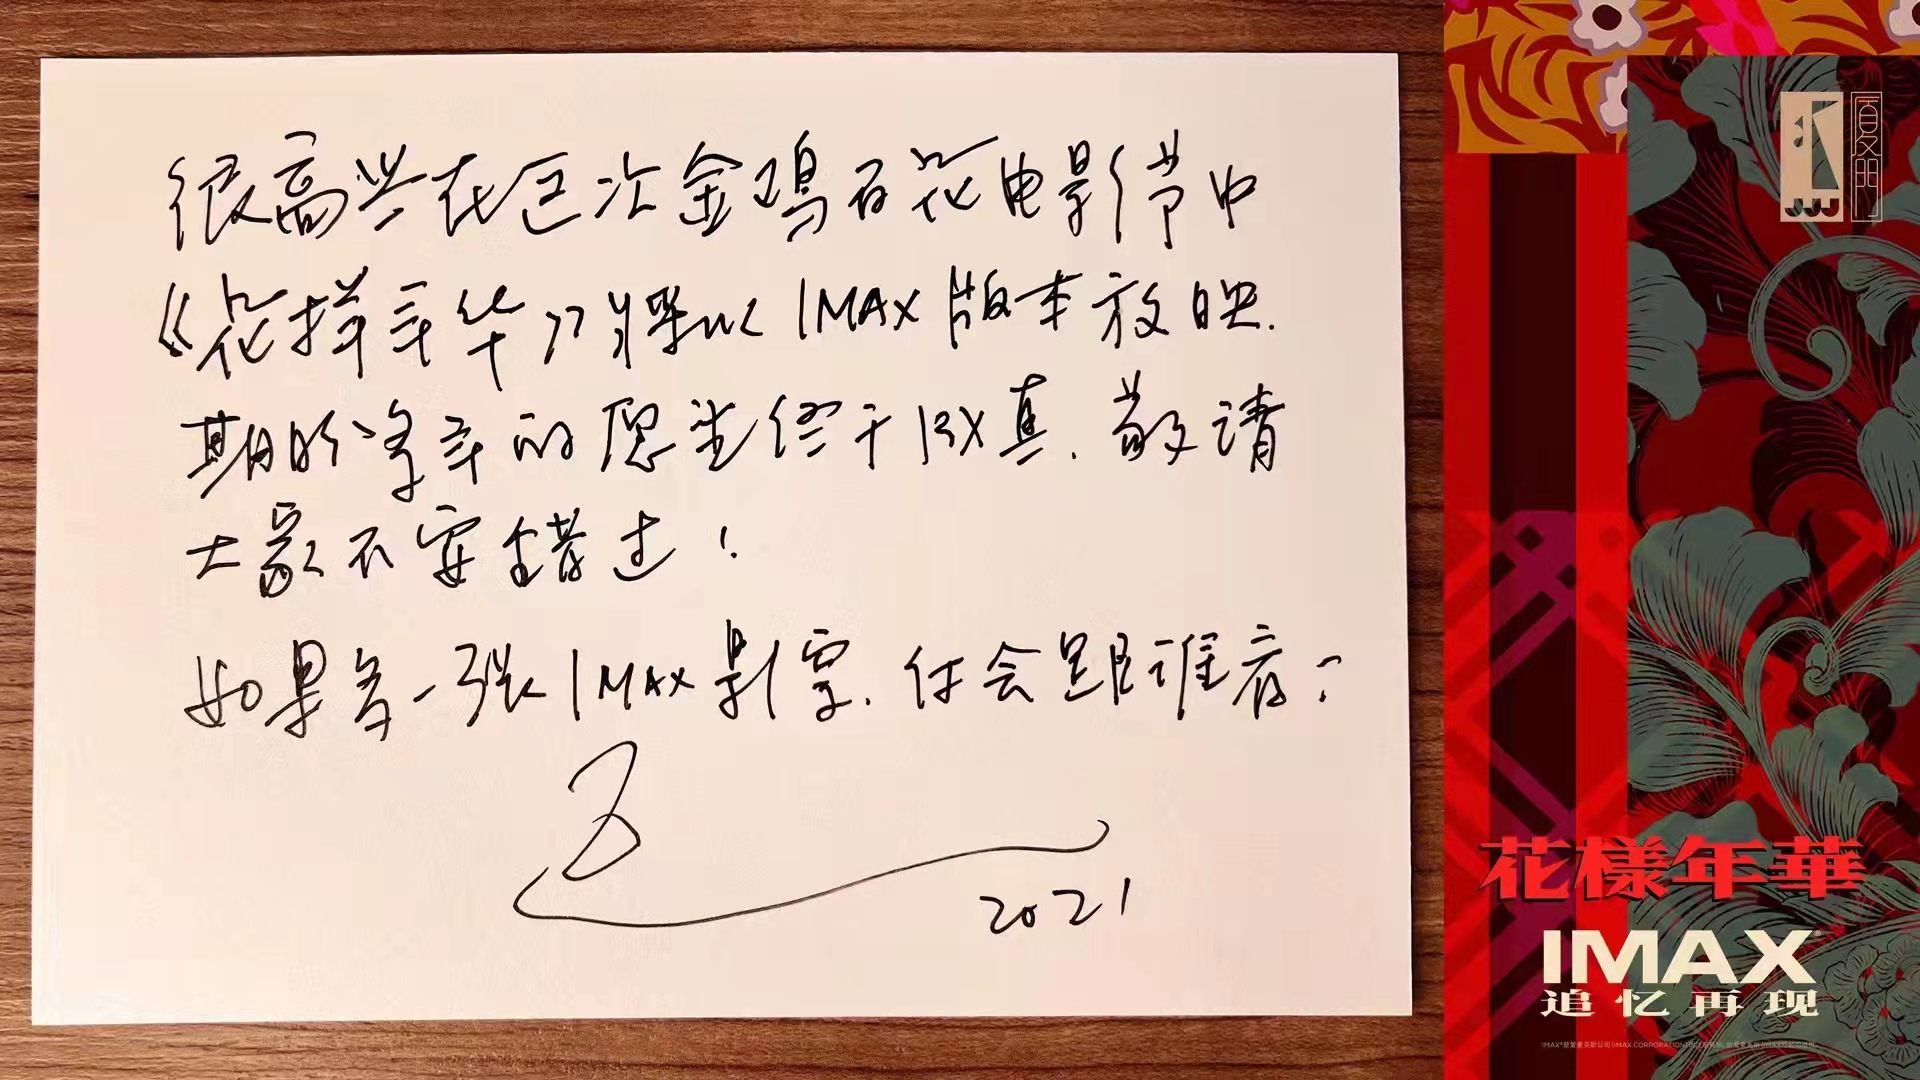 很高兴在这次金鸡百花电影节中
《花样年华》将以IMAX版本放映.
期盼多年的愿望终于成真.敬请
大家不要错过!
如果多一张IMAX影票.你会跟谁看?
2021
厦门
花樣年華
IMAX
追忆再现